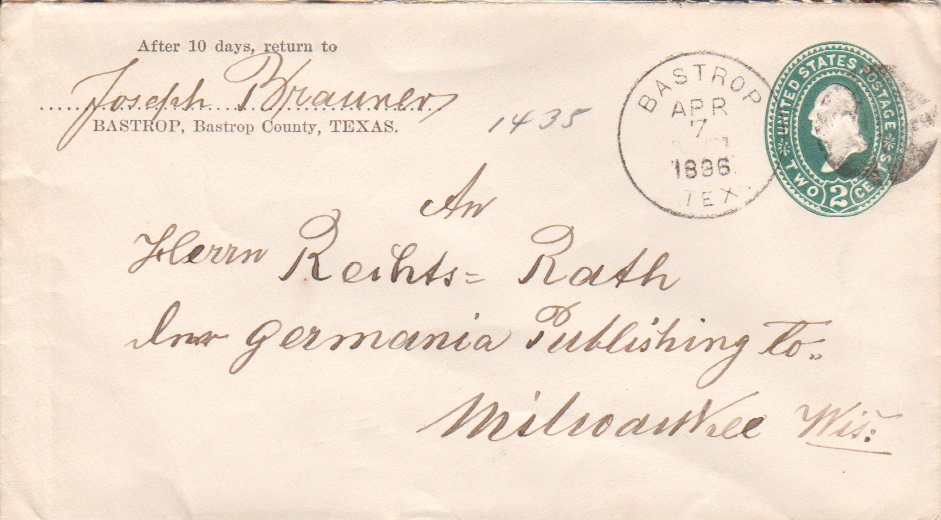 After 10 days, return to
Joseph Brauner
BASTROP, Bastrop County, TEXAS.
1435
BASTROP
APR
7
1896
TEX.
UNITED STATES POSTAGE
TWO 2 CENTS
An
Herrn Rechts= Rath
Der Germania Publishing Co.
Milwaukee Wis: